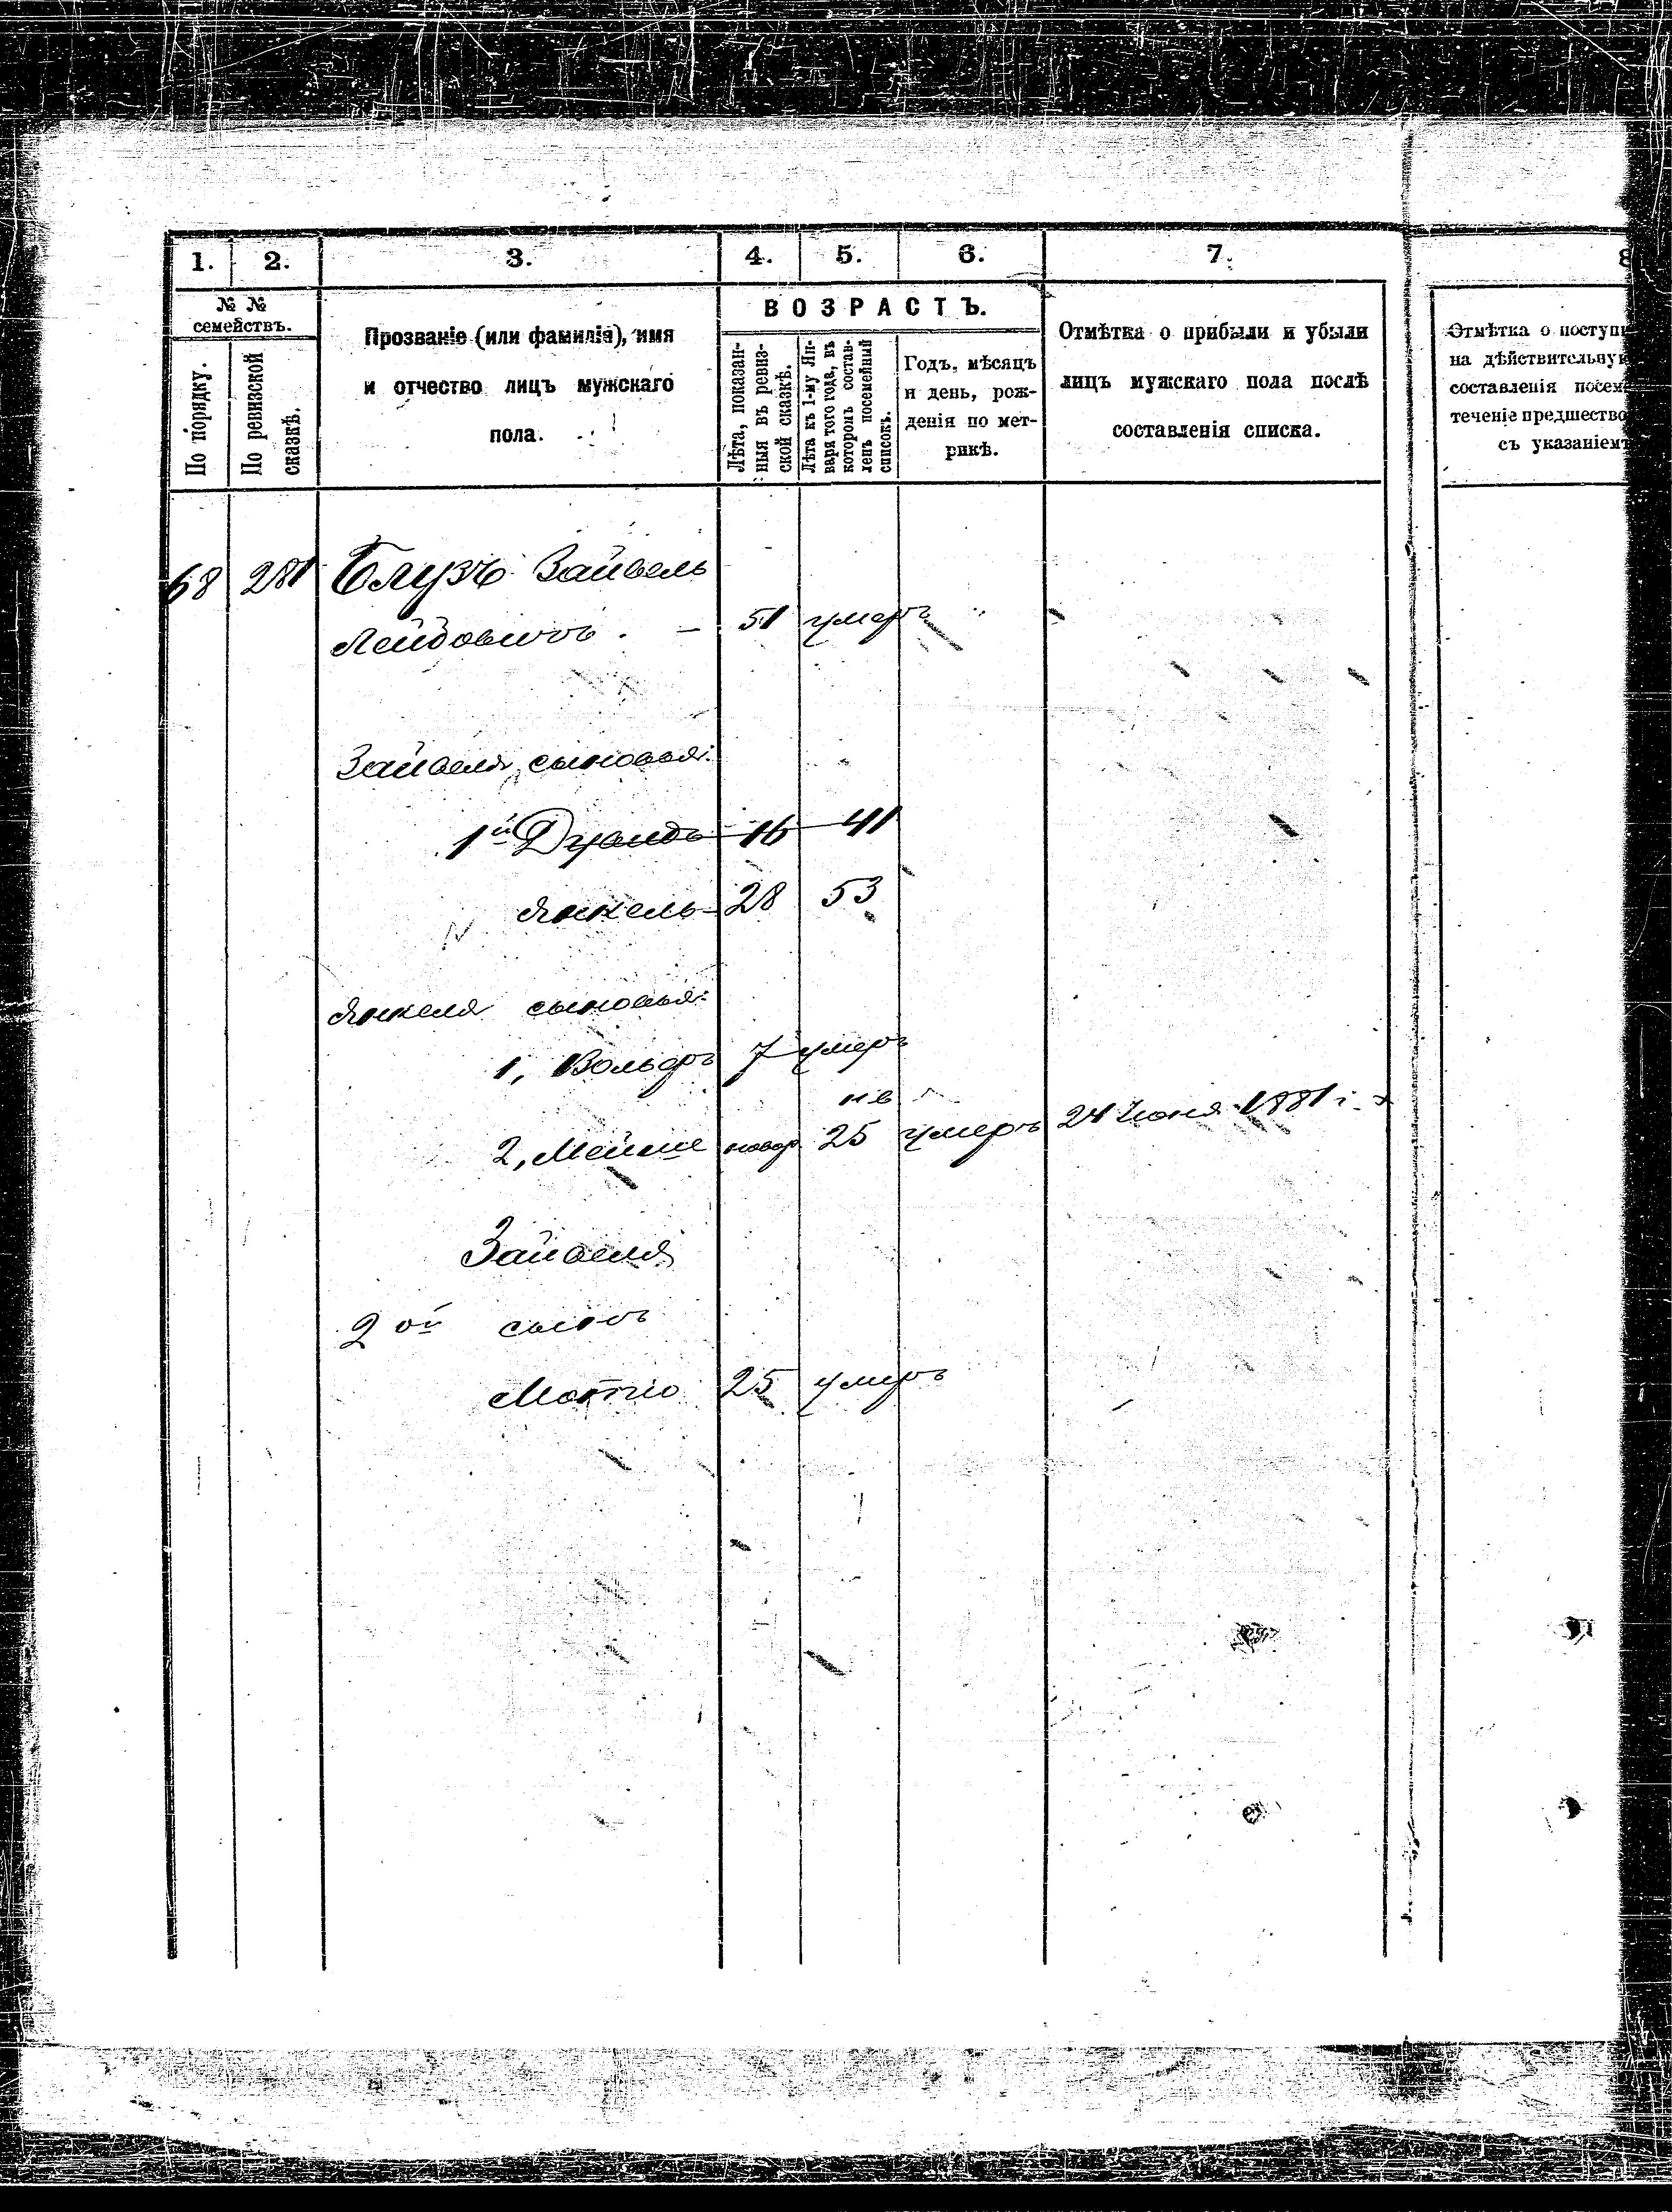 1. 2. 3. 4. 5. 6. 7. 8
№ №
семействъ.
По порядку.
По ревизской
сказкѣ.
Прозваніе (или фамилія), имя
и отчество лицъ мужскаго
пола.
ВОЗРАСТЪ.
Лѣта, показан-
ныя въ ревиз-
ской сказкѣ.
Лѣта къ 1-му Ян-
варя того года, въ
которомъ состав-
ленъ посемейный
списокъ.
Годъ, мѣсяцъ
и день, рож-
денія по мет-
рикѣ.
Отмѣтка о прибыли и убыли
лицъ мужскаго пола послѣ
составленія списка.
Отмѣтка о поступ
на дѣйствительну
составленія посем
теченіе предшество
съ указаніем
68 281 Блузъ Зайвель
Лейбовичъ. - 51 умеръ
Зайвеля сыновья:
1й 16 41
Янкель 28 53
Янкеля сыновья:
1, Вольфъ 7 умеръ
2, новор 25 умеръ 24 Іюня 1881 г.
Зайвеля
2ой сынъ
Мотіо 25 умеръ